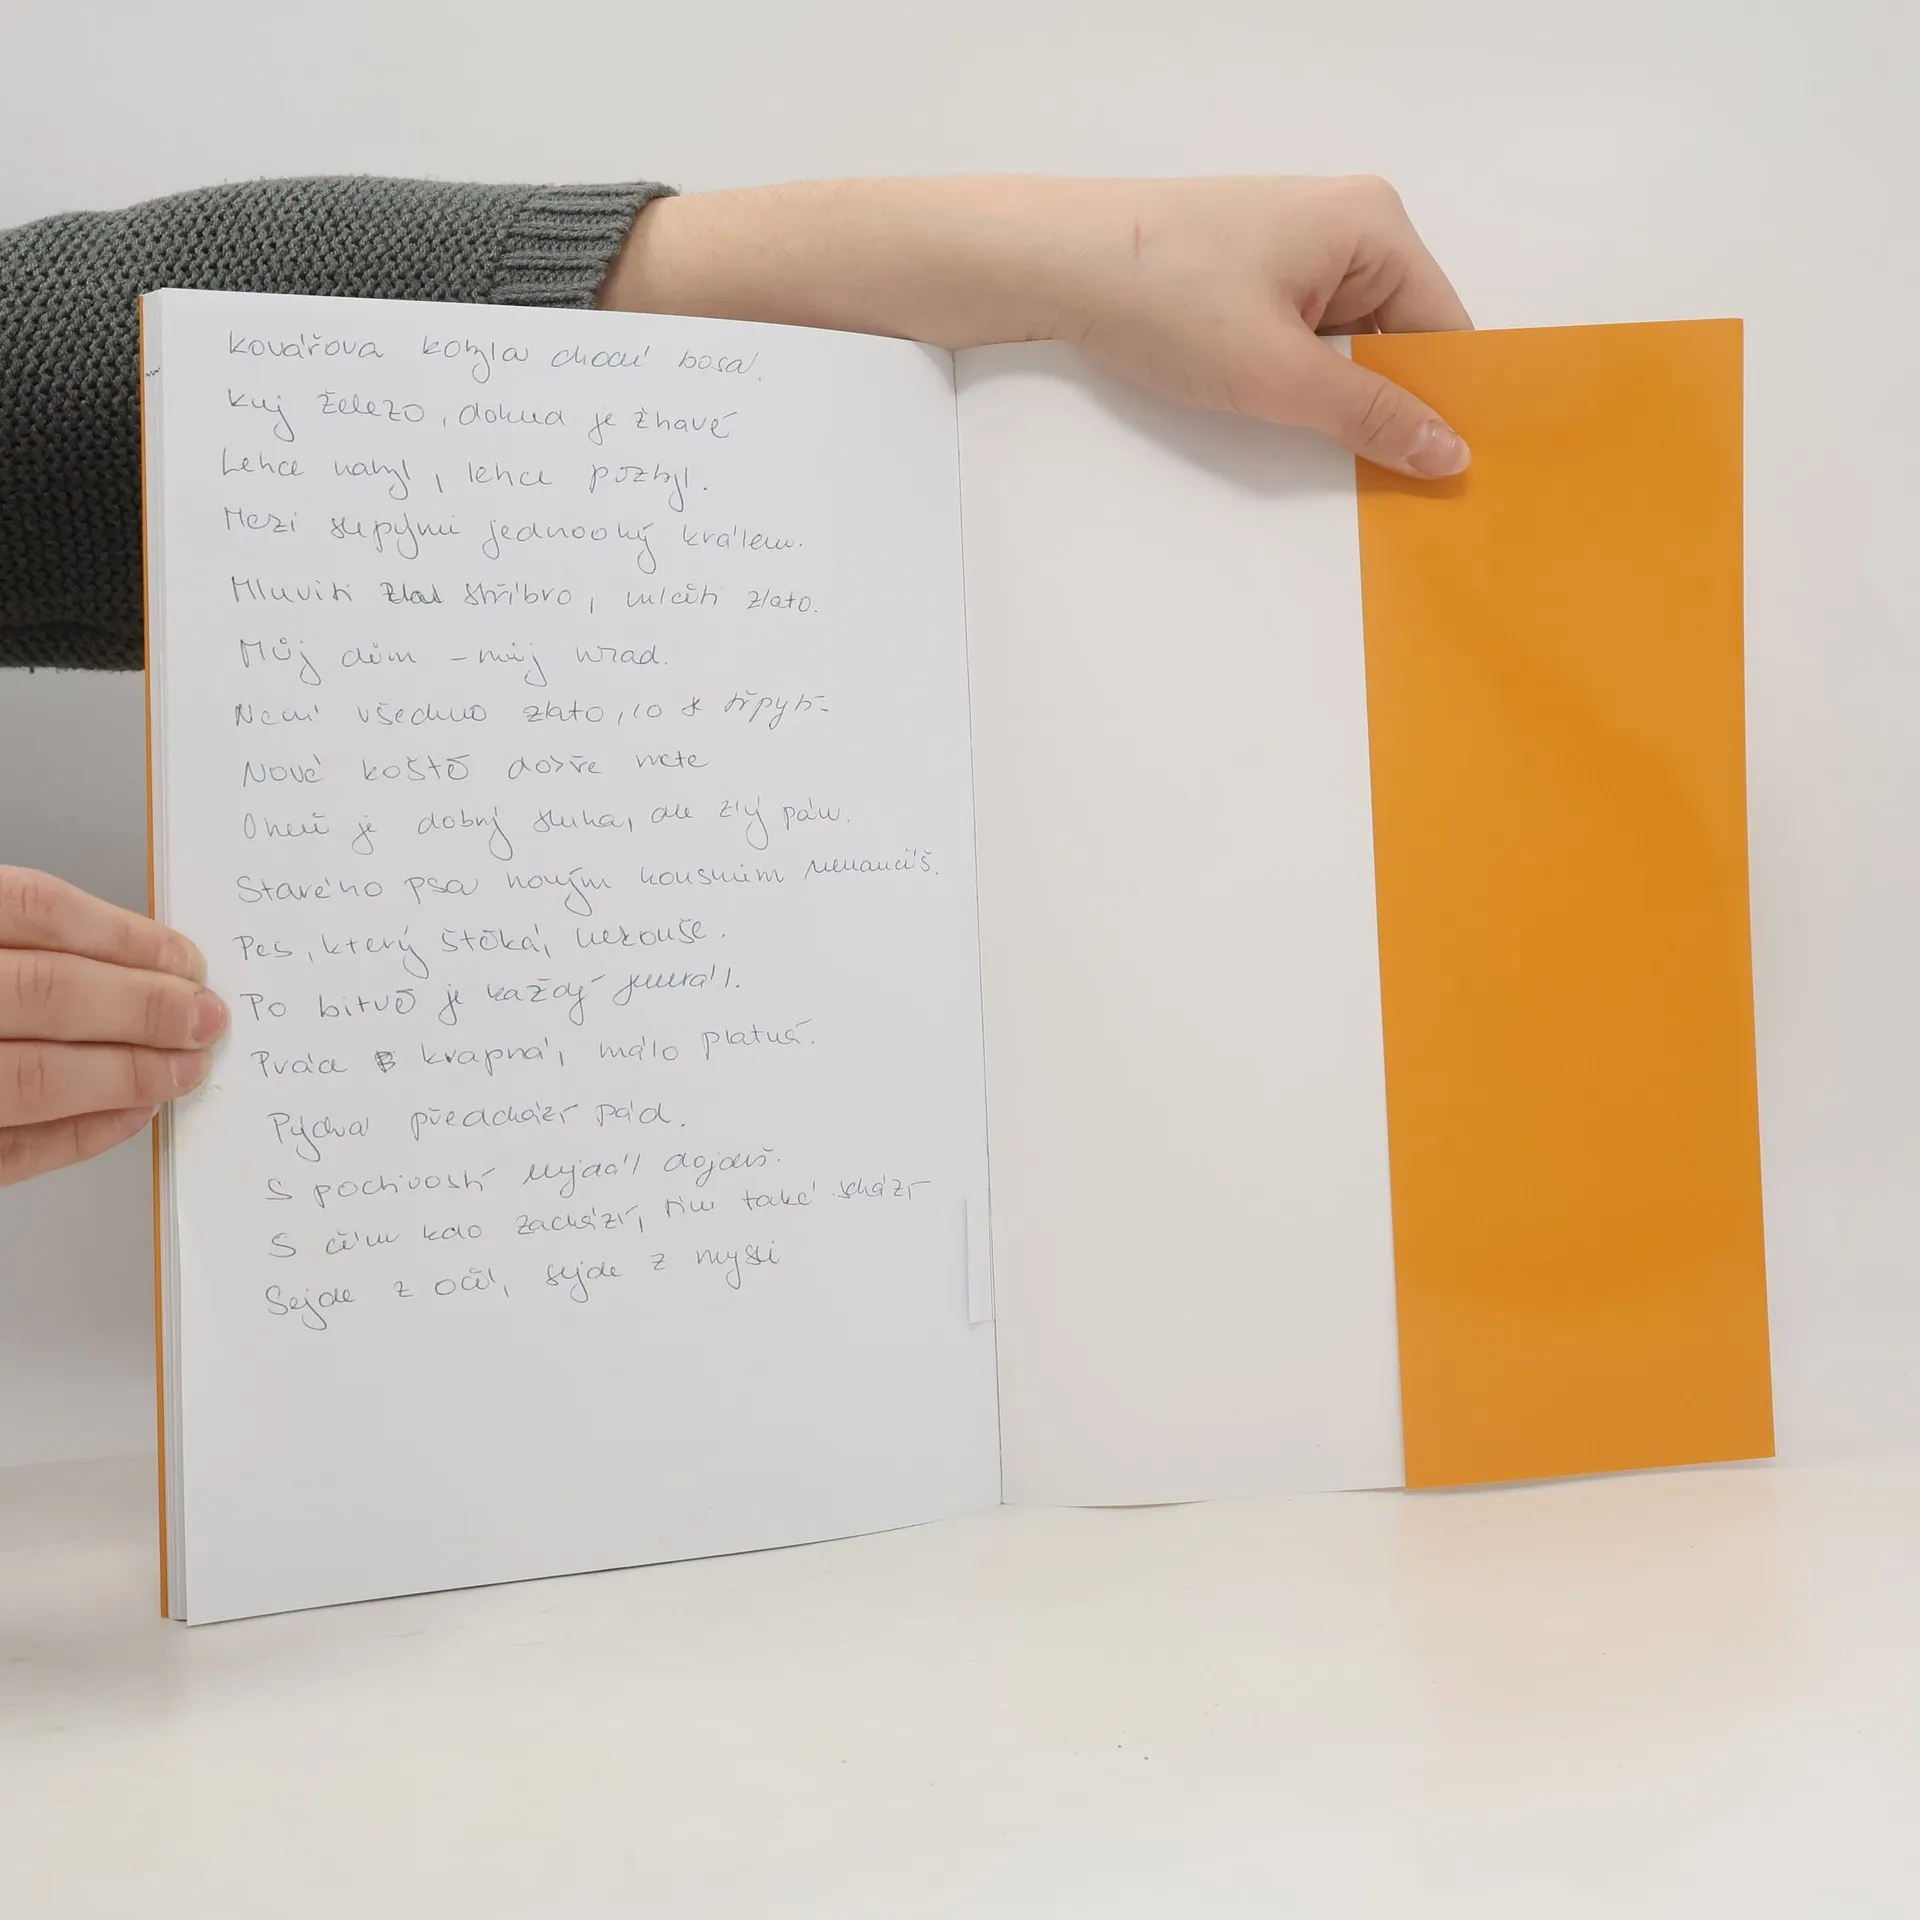 Kovářova kobyla chodí bosa.
Kuj železo, dokud je žhavé
Lehce nabyl, lehce pozbyl.
Mezi slepými jednooký králem.
Mluviti stříbro, mlčeti zlato.
Můj dům - můj hrad.
Není všechno zlato, co se třpytí
Nové koště dobře mete
Oheň je dobrý sluha, ale zlý pán.
Starého psa novým kouskům nenaučíš.
Pes, který štěká, nekouše.
Po bitvě je každý generál.
Práce kvapná, málo platná.
Pýcha předchází pád.
S poctivostí nejdál dojdeš.
S čím kdo zachází, tím také schází
Sejde z očí, sejde z mysli